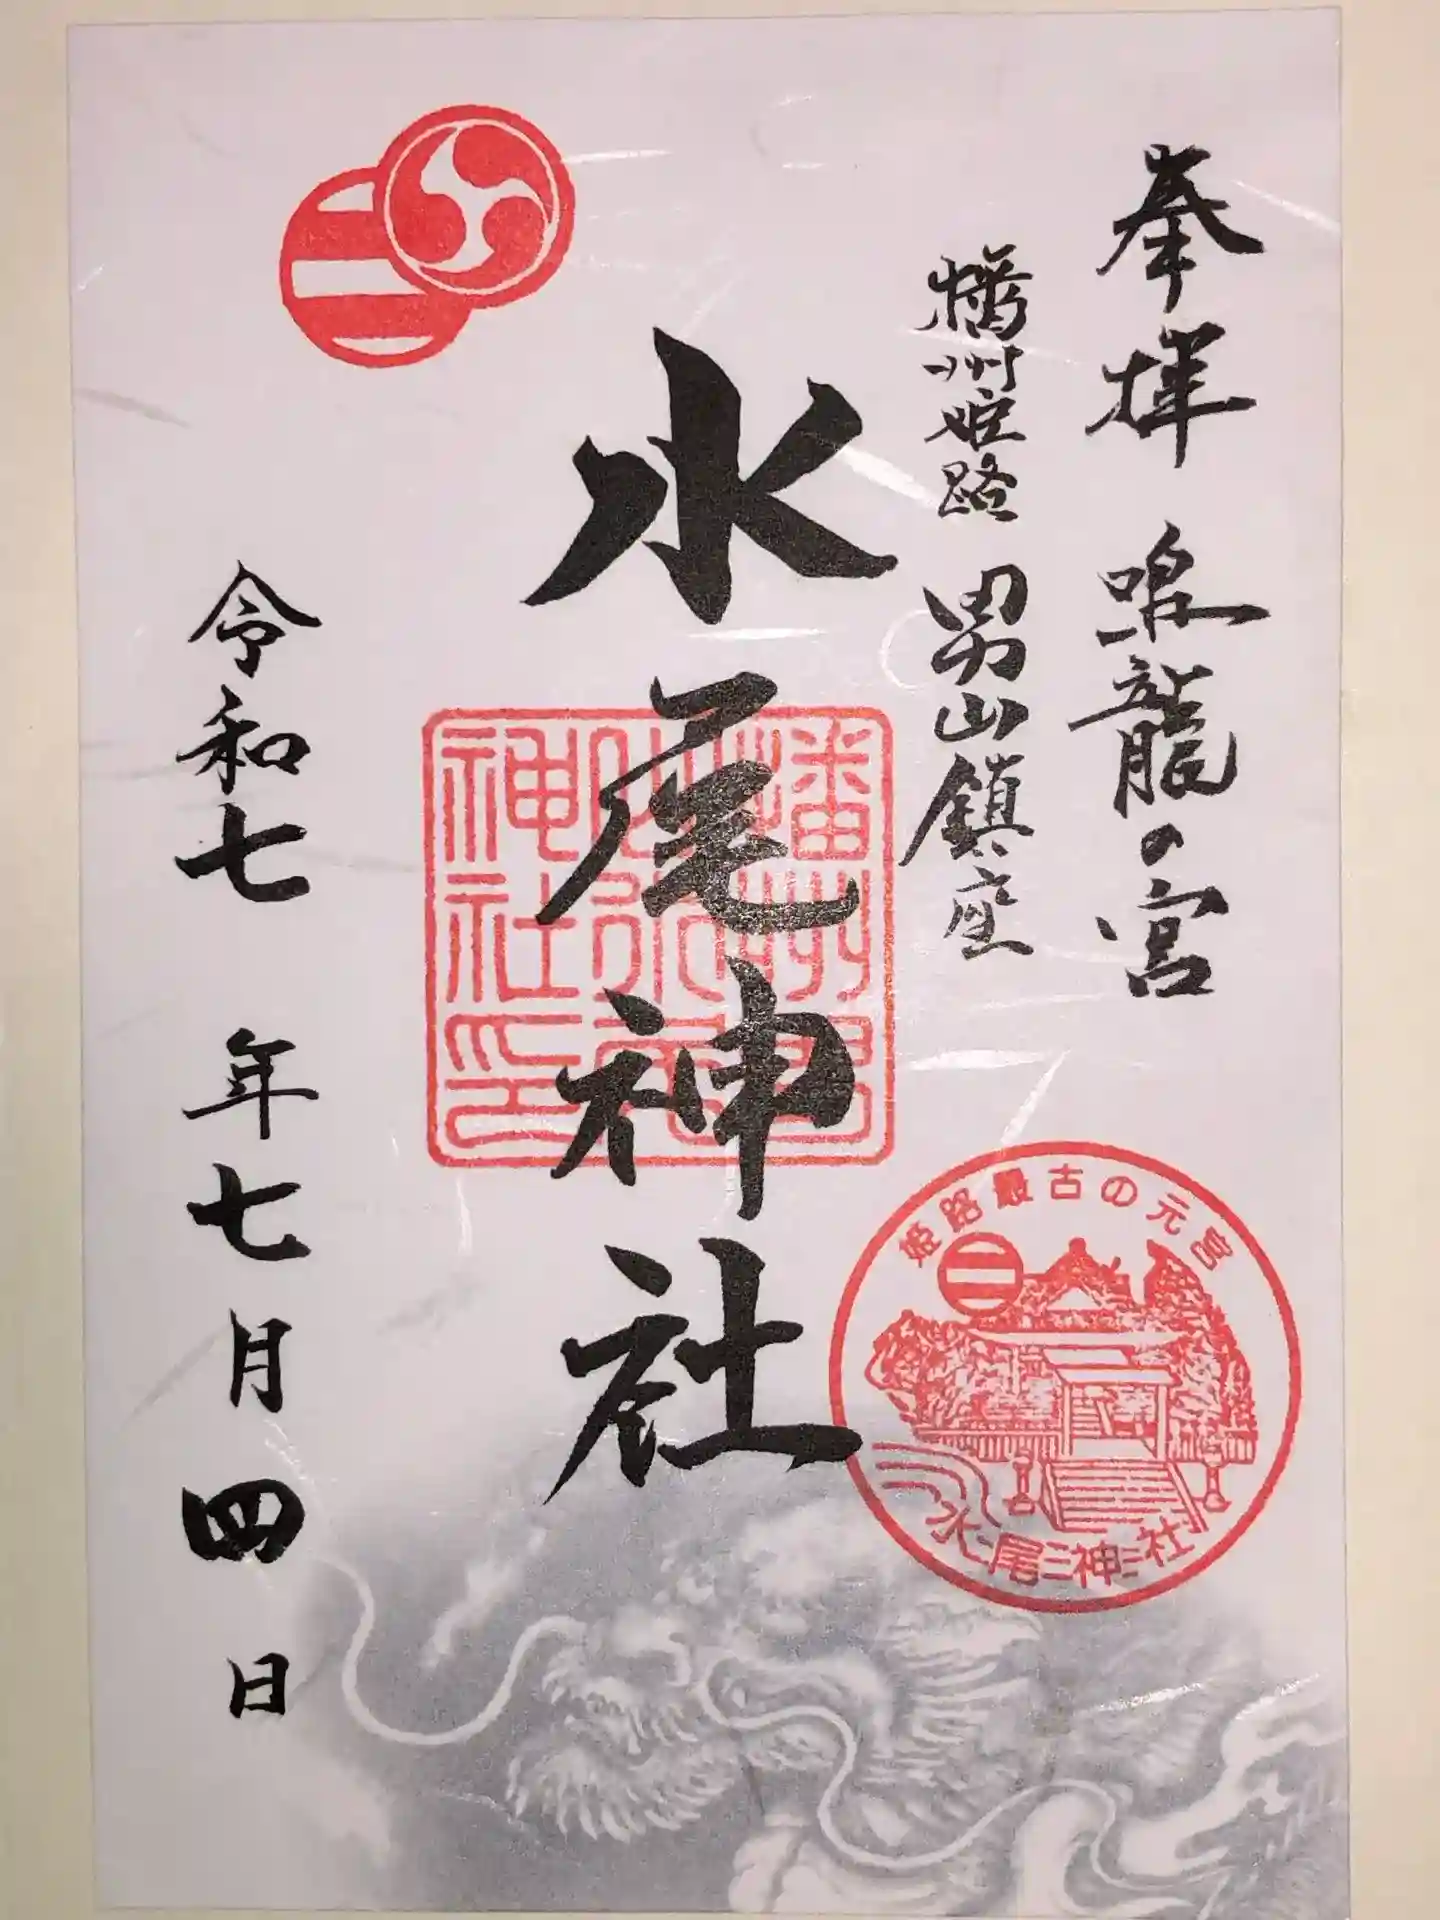 奉拝 鳴龍の宮
播州姫路 男山鎮座
水尾神社
播州男
山水尾
神社印
令和七年七月四日
姫路最古の元宮
水尾神社